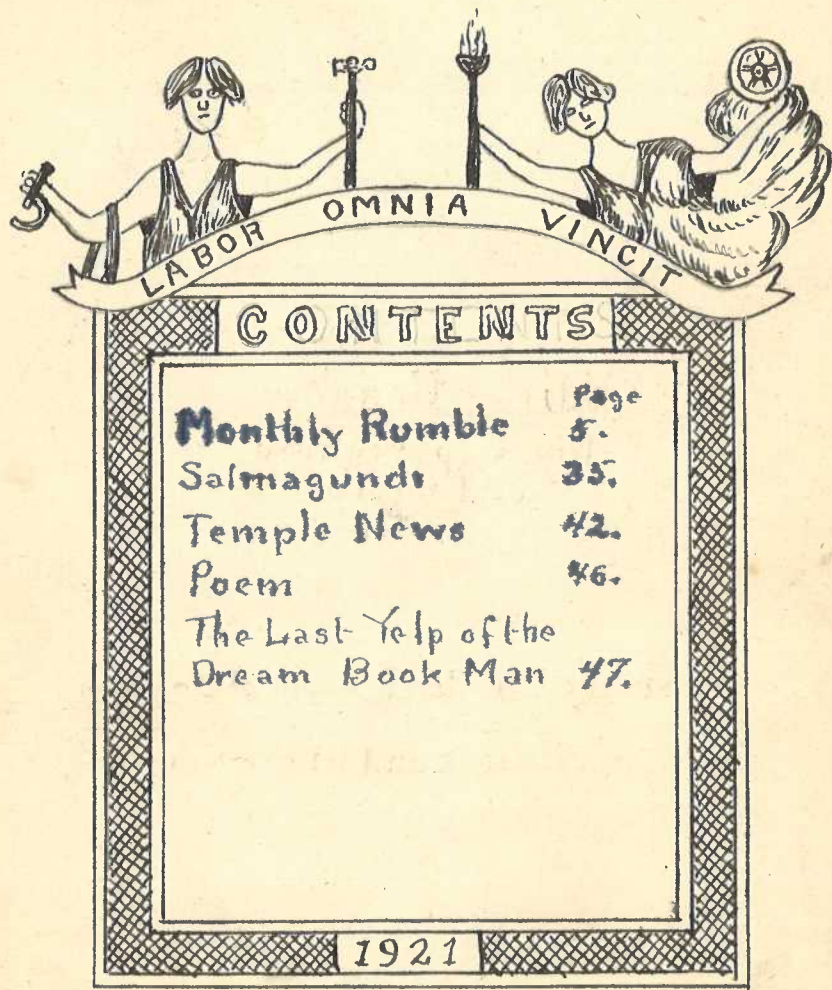 LABOR OMNIA VINCIT
CONTENTS
Page
Monthly Rumble 5.
Salmagundi 35.
Temple News 42.
Poem 46.
The Last Yelp of the
Dream Book Man 47.
1921